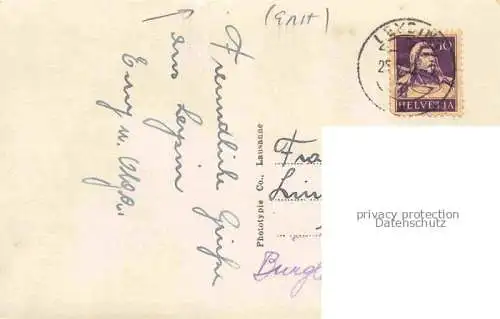 Freundliche Grüße
aus Leysin
Phototypie Co., Lausanne
LEYSIN
10
HELVETIA
Fra
Lin
Burgl
privacy protection
Datenschutz